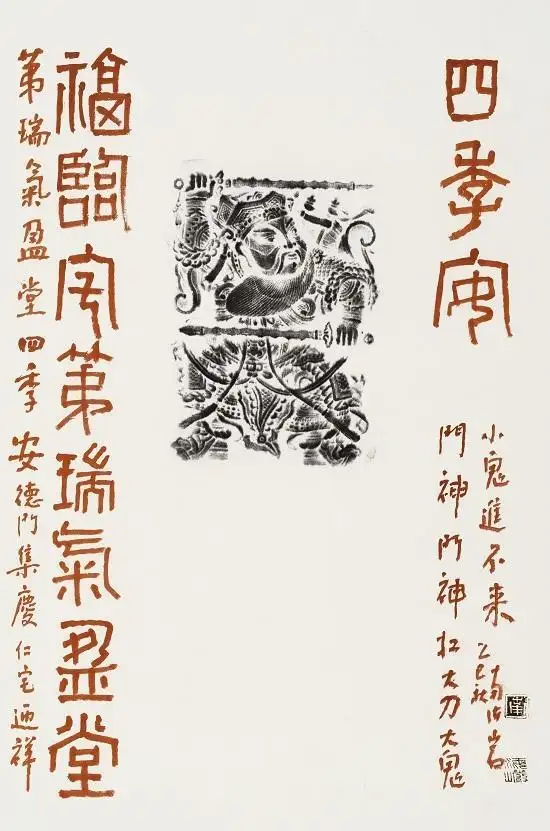 福臨宅第瑞氣盈堂
四季安
第瑞氣盈堂四季安德門集慶仁宅迎祥
門神門神扛大刀大鬼
小鬼進不來乙巳秋